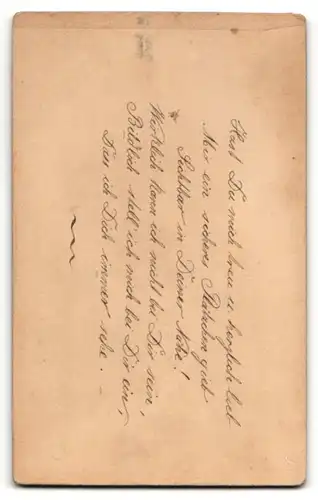 Hast Du mich treu u. herzlich lieb
Mir ein sicheres Plätzchen gieb
Sichtbar in Deiner Nähe!
Wirklich kann ich nicht bei Dir sein,
Bildlich stell ich mich bei Dir ein,
Daß ich Dich immer sehe.